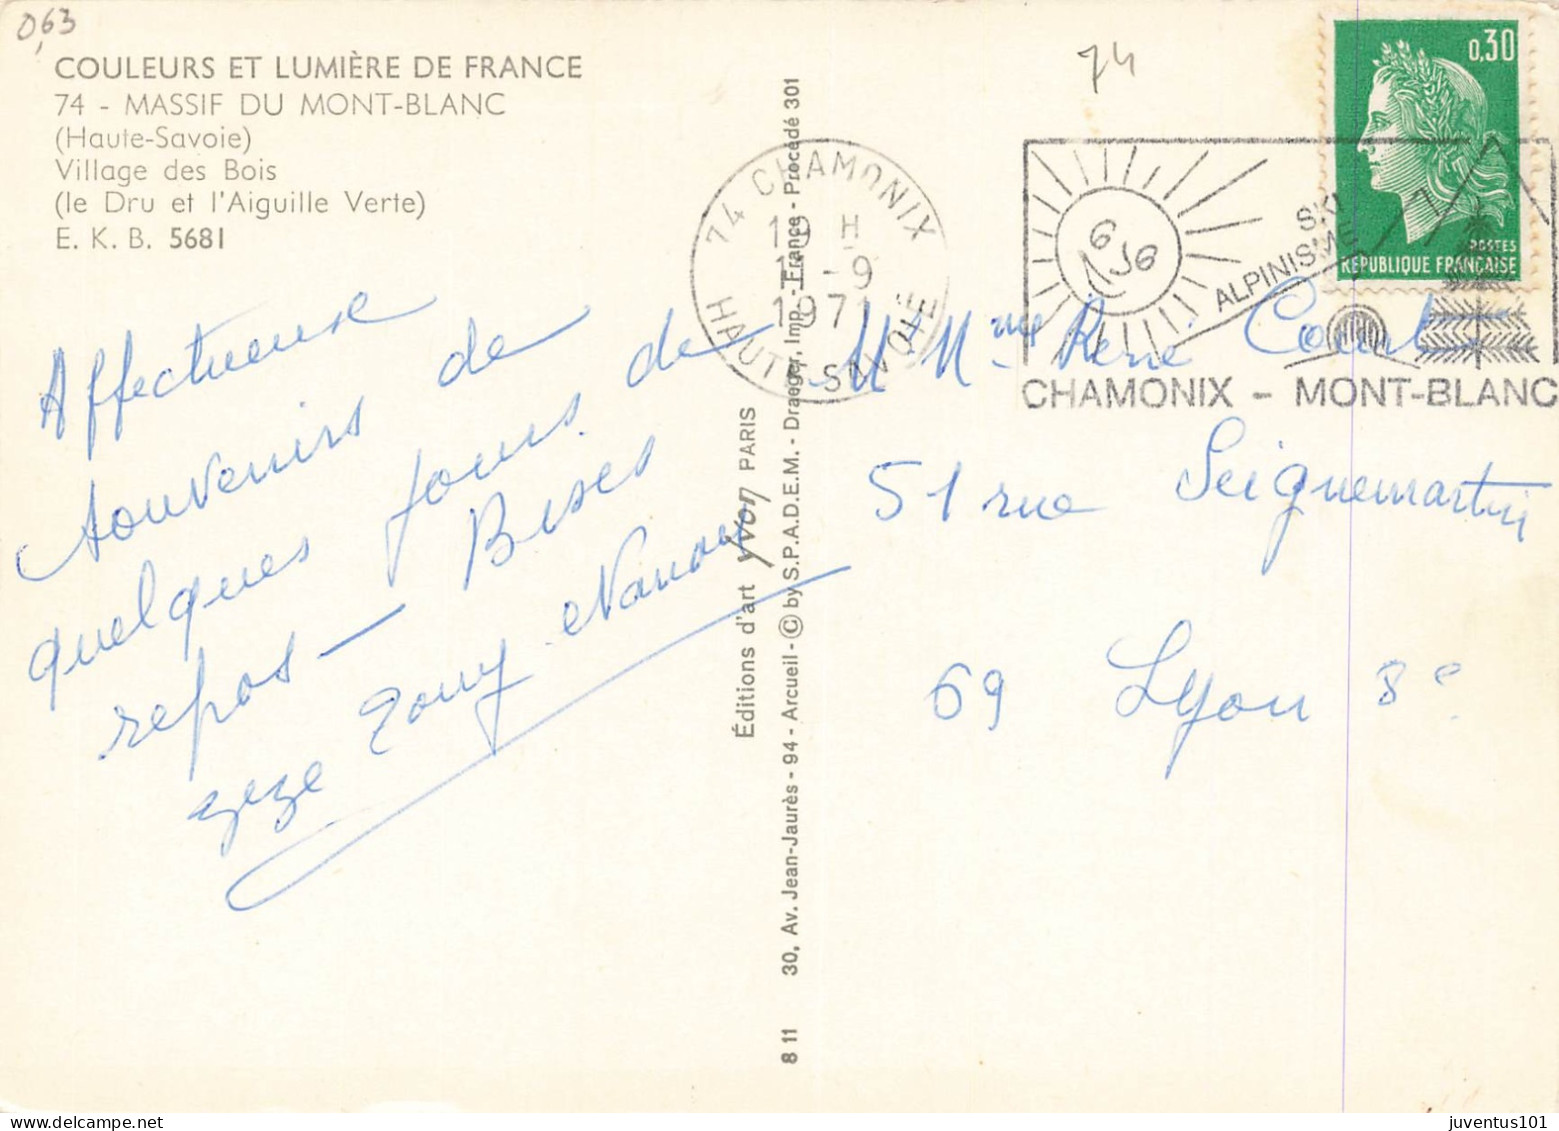 0,63
COULEURS ET LUMIÈRE DE FRANCE
74 - MASSIF DU MONT-BLANC
(Haute-Savoie)
Village des Bois
(le Dru et l'Aiguille Verte)
E. K. B. 5681
Affectueux
souvenirs de
quelques jours de
repos — Bises
zeze
74
0,30
POSTES
RÉPUBLIQUE FRANÇAISE
74 CHAMONIX
19 H
-9
1971
HAUTE SAVOIE
SKI
ALPINISME
CHAMONIX - MONT-BLANC
M Mme René
51 rue Seignemartin
69 Lyon 8e
Éditions d'art yvon PARIS
8 11 30, Av. Jean-Jaurès - 94 - Arcueil - © by S.P.A.D.E.M. - Draeger, Imp. - France - Procédé 301
juventus101